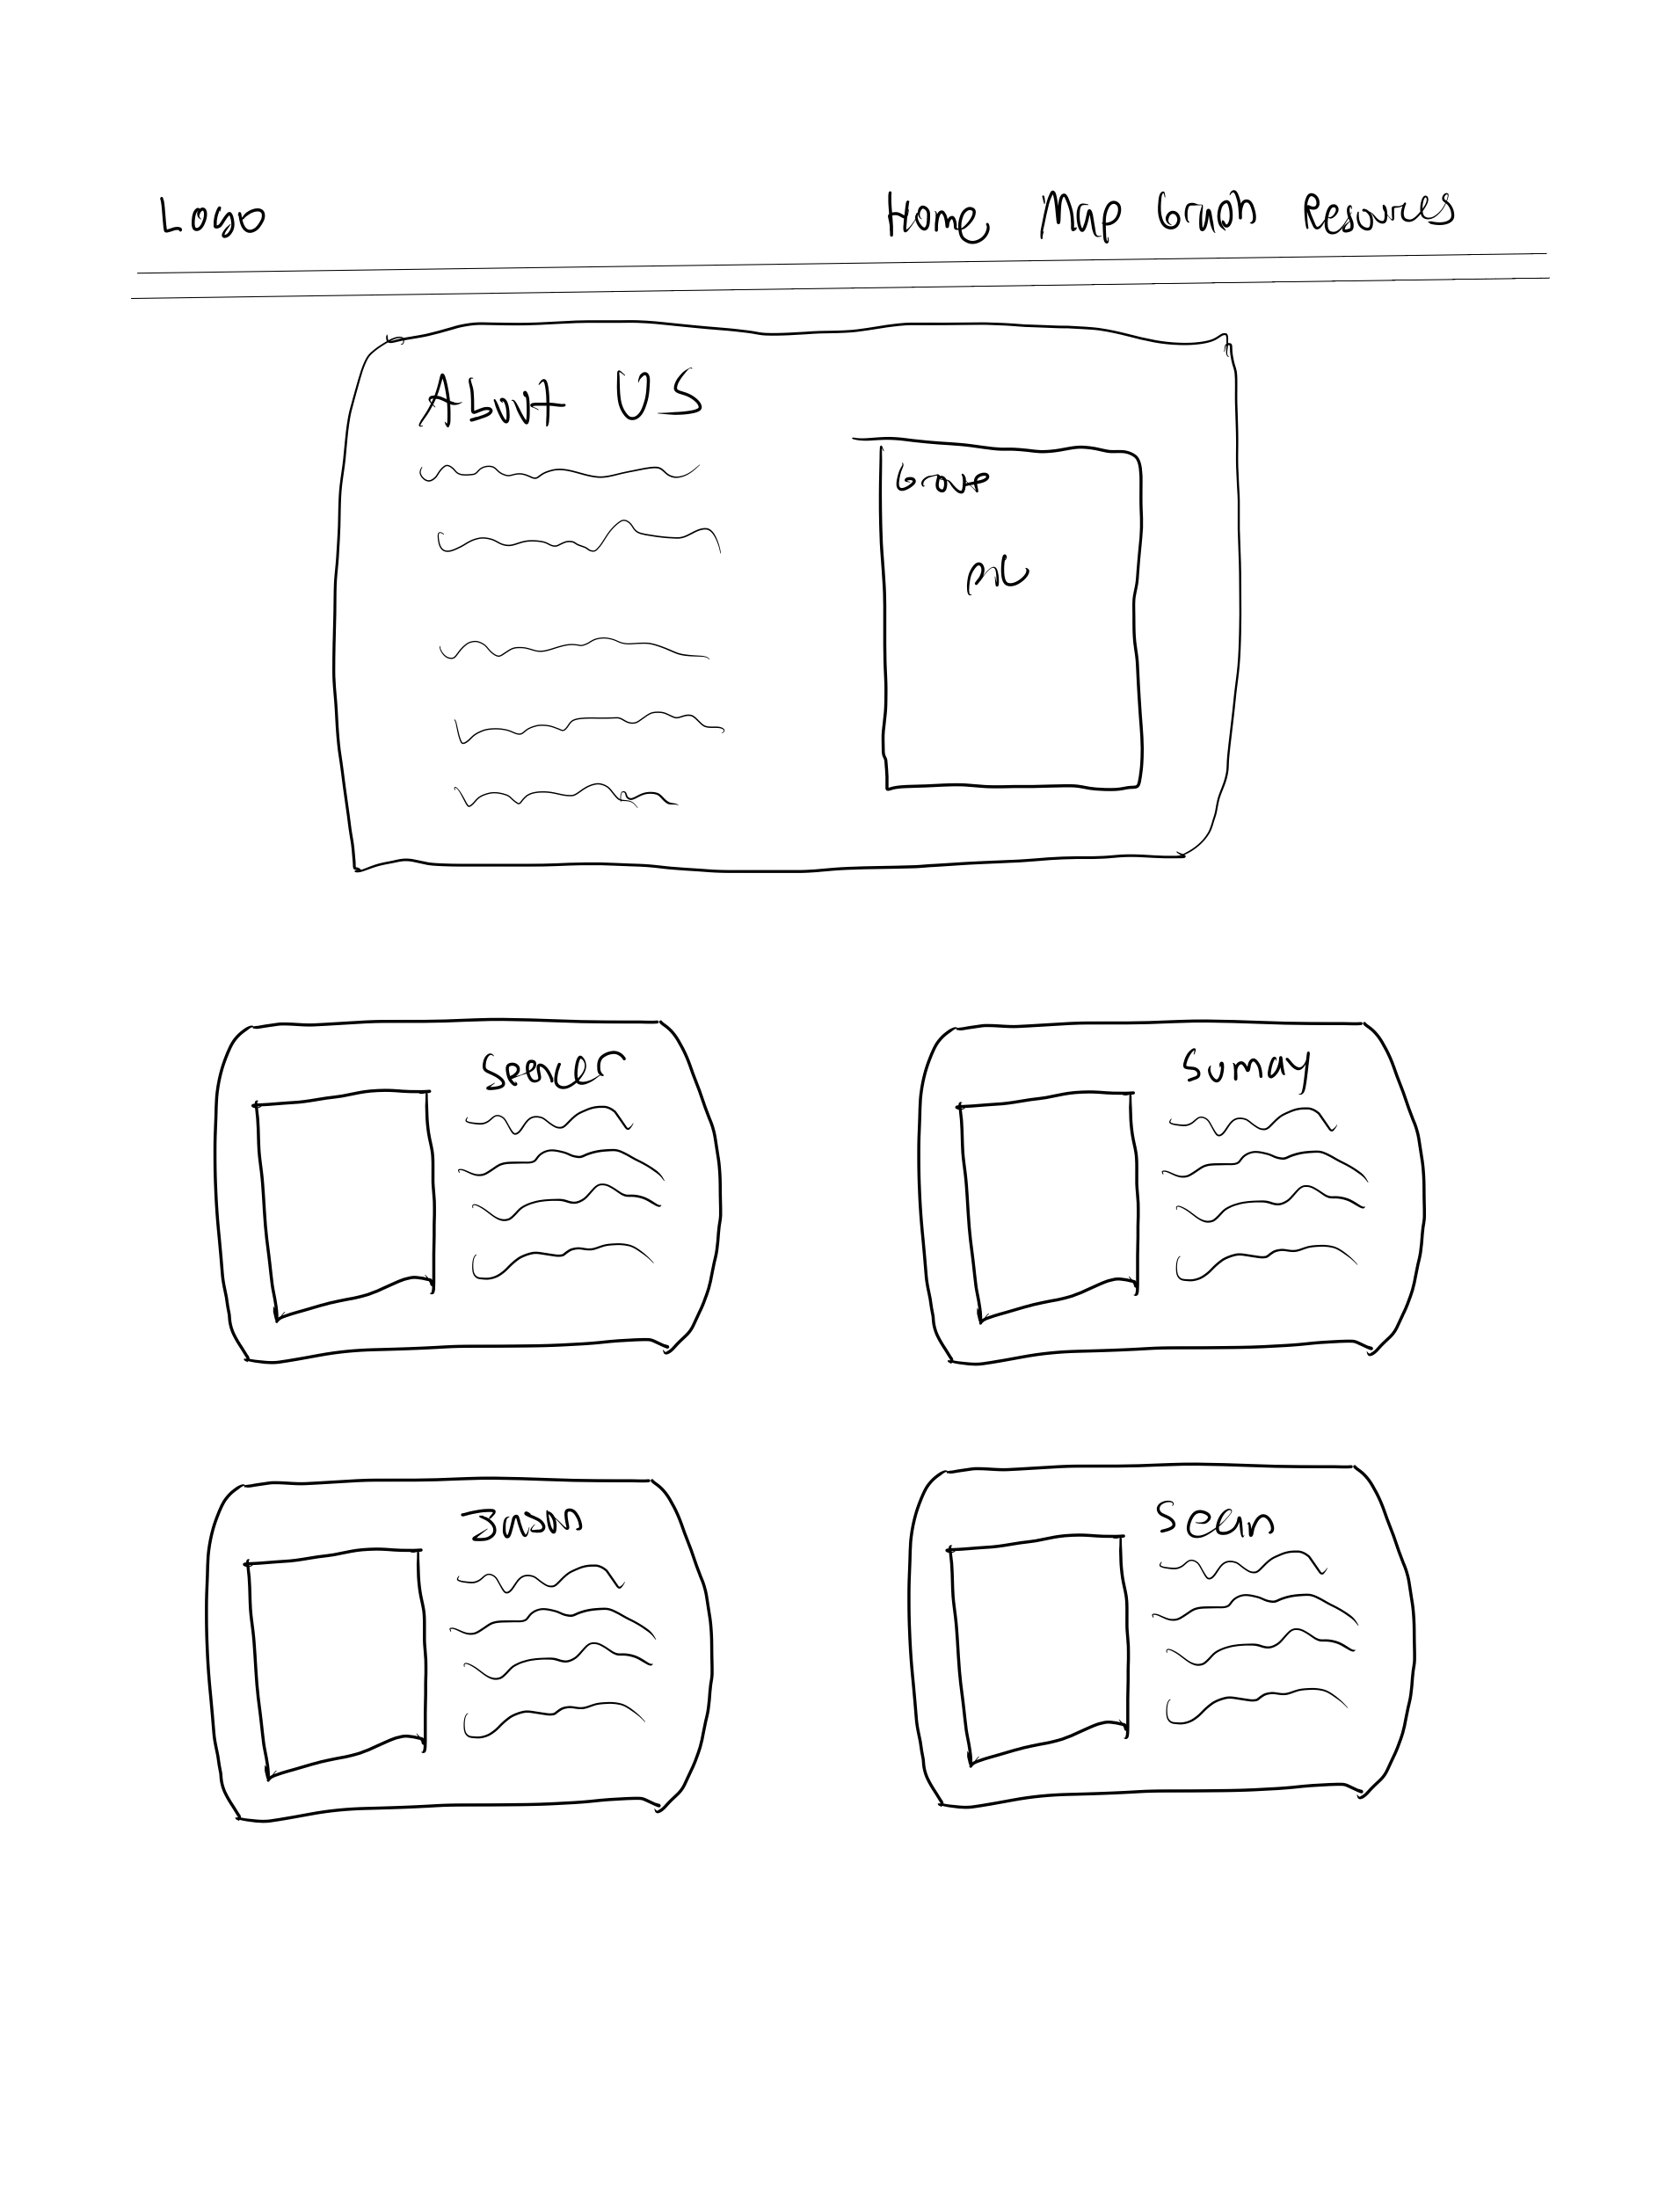 Logo
Home Map Graph Resources
About US
Group
pic
Spencer
Sean